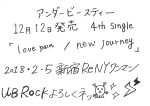 アンダービースティー
12月12日発売 4th single
「love pain / new journey」
2018・2・5 新宿ReNYワンマン
UB Rockよろしくネ